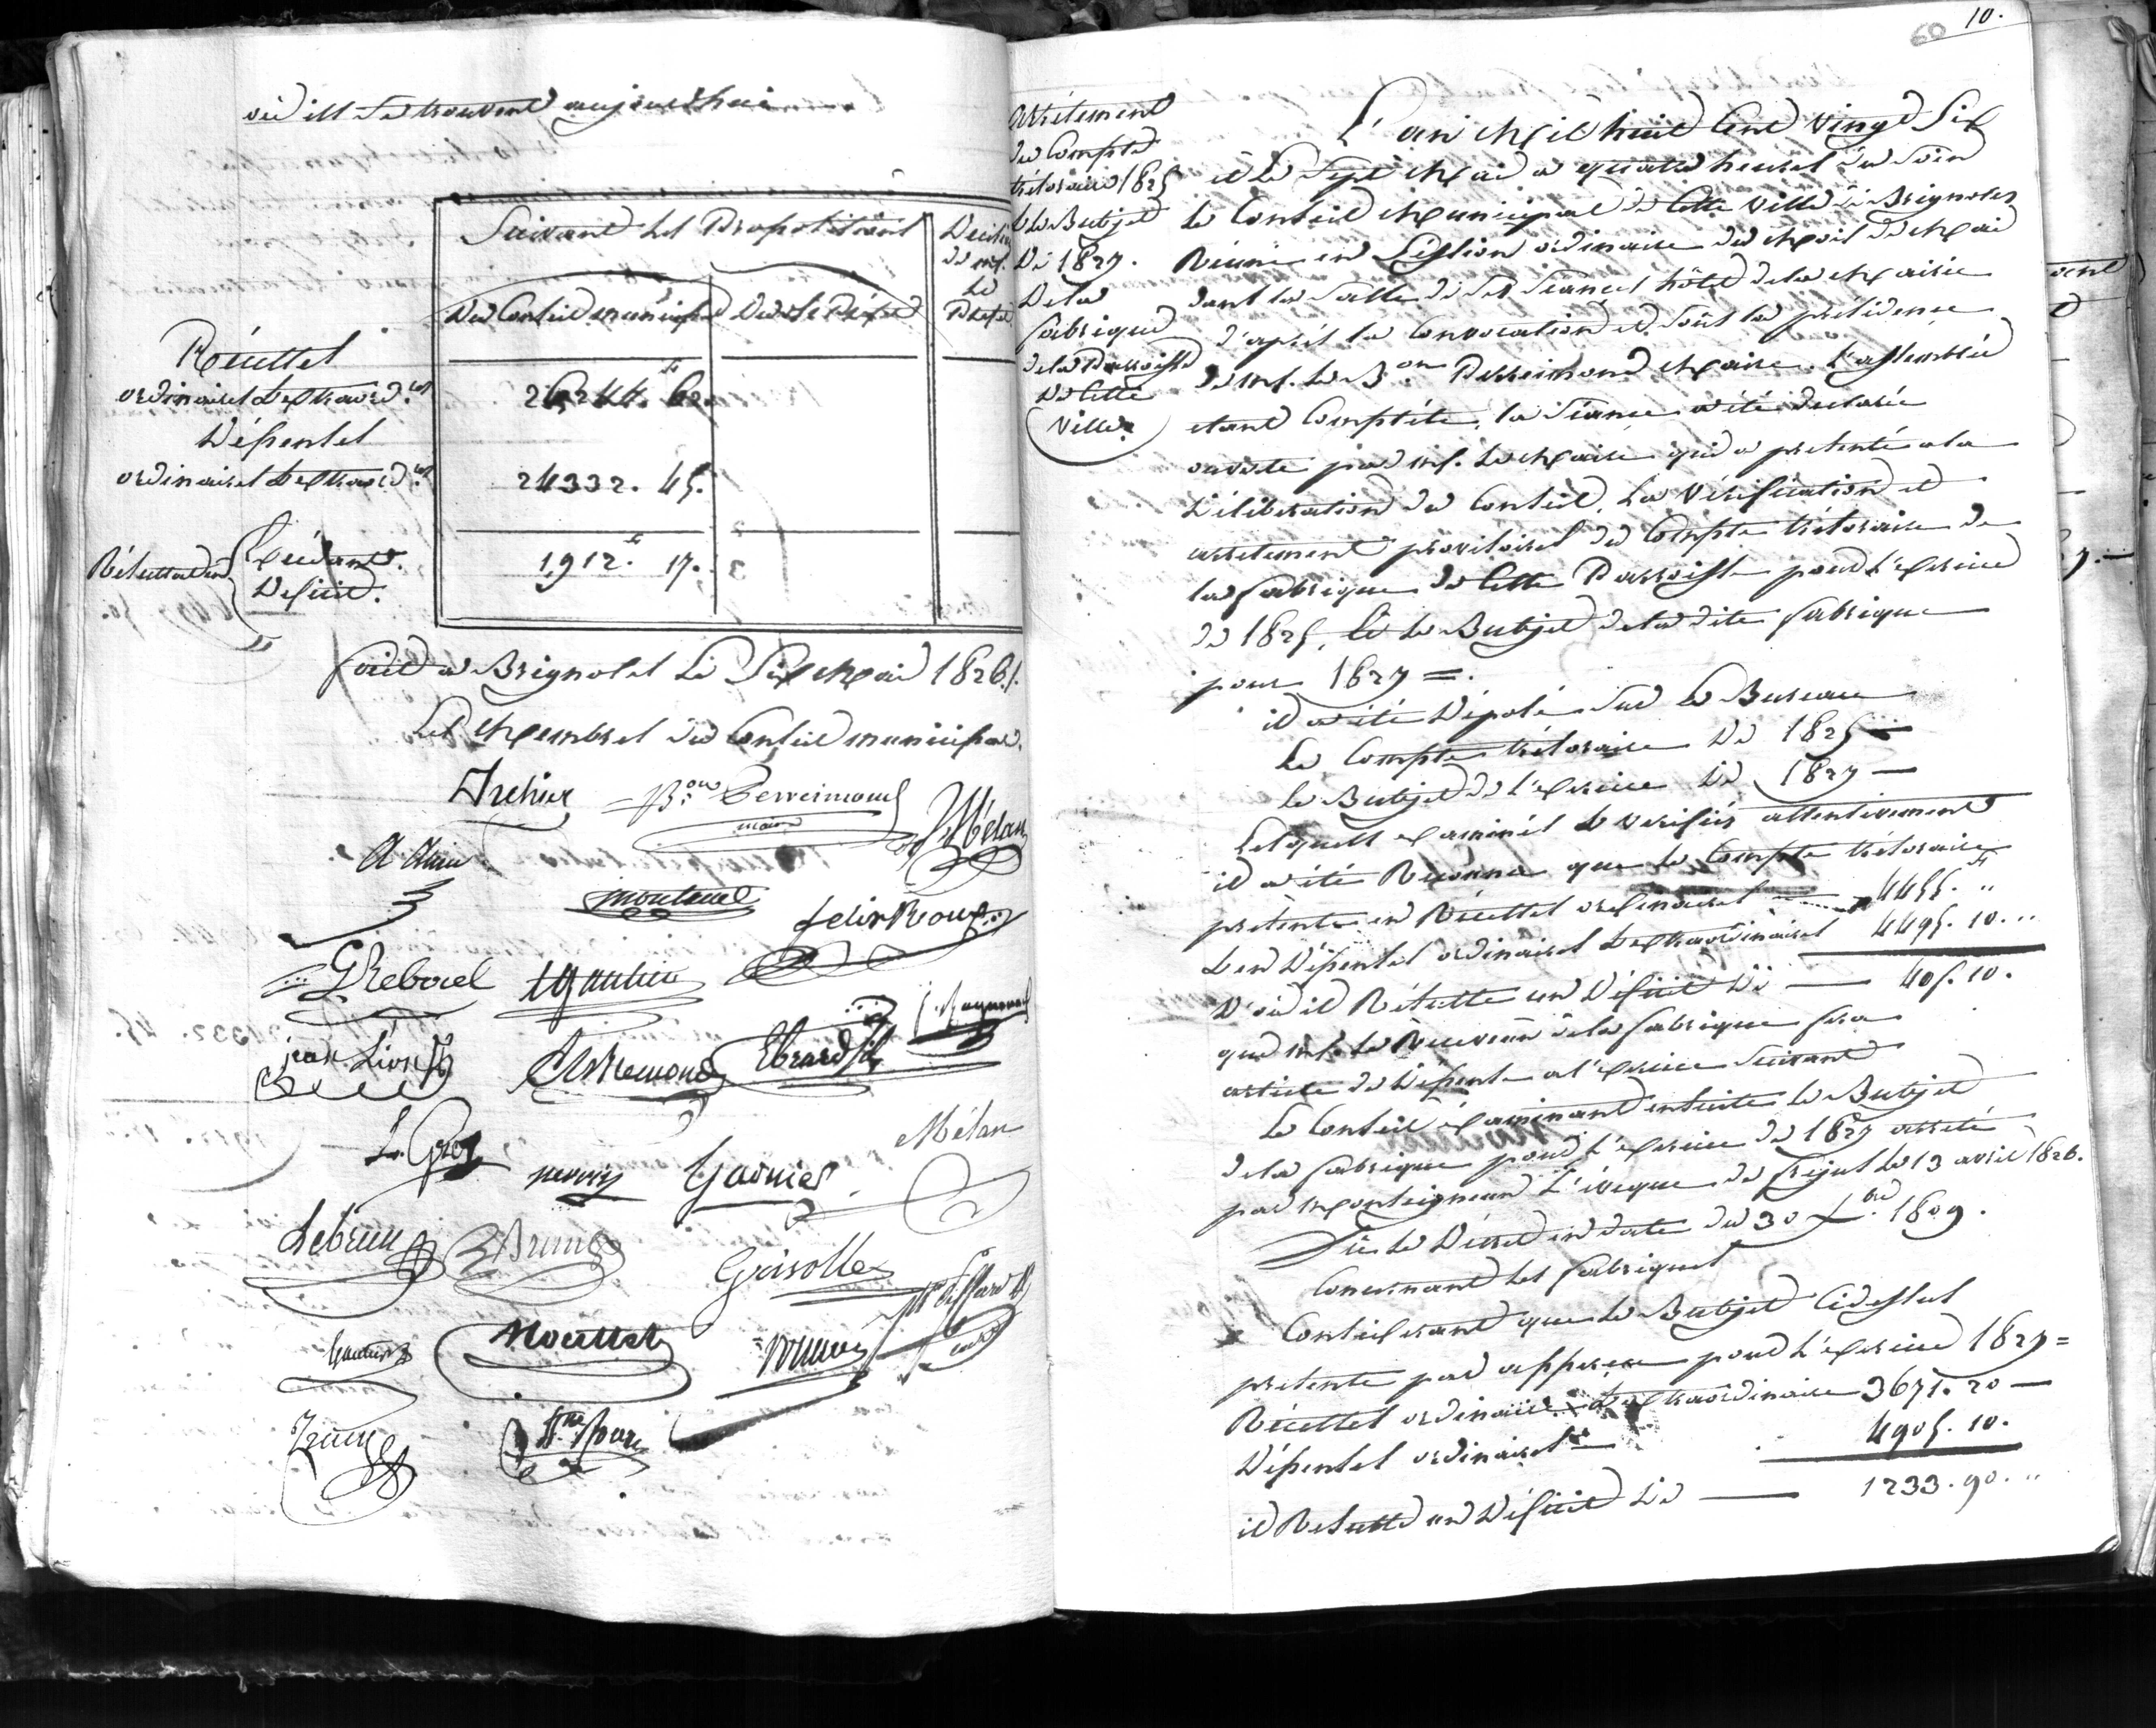 où ils se trouvent aujourd'hui
Suivant les Propositions
Du Conseil municipal
Du S. Préfet
Décision
de M.
Le
Préfet
Récettes
ordinaires & extraord.res
26244.f 62.
Dépenses
ordinaires & extraord.res
24332. 45.
Résultat en
Excédant.
Déficit.
1912.f 17.
fait a Brignoles Le Six Mai 1826./.
Les Membres du Conseil municipal.
Archier
B.on Perreimond
maire
J. Mélan
A Alain
mouttuel
felix Roux
G Reboul
Gautier
jean Lion
A Brémond
Ebrard fils
L. Gros
Garnier
Mélan
Lebrun
Brun
Grisolle
Mouttet
10.
60
Arrêtement
du Compte
trésoraire 1825
& le Butjet
De 1827.
De la
fabrique
de la Parroisse
De Cette
Ville.
L'an Mil huit Cent Vingt Six
et le Sept Mai a quatre heures du Soir
Le Conseil Municipal de Cette Ville de Brignoles
Réuni en Session ordinaire du Mois de Mai
dans la Salle de ses Séances hôtel de la Mairie
d'après la Convocation et sous la présidence
de M. Le B.on Perreimond Maire. L'assemblée
etant Complète, la Séance a été declarée
ouverte par M. Le Maire qui a presenté a la
Délibération du Conseil, La Vérification et
arretement provisoires du Compte trésoraire de
la fabrique de Cette Parroisse pour L'exercice
de 1825, Et le Butjet de la dite fabrique
pour 1827 =.
il a été Déposé Sur le Bureau
Le Compte trésoraire De 1825 —
le Butjet de l'exercice De 1827 —
Lesquels examinés & verifiés attentivement
il a été Reconnu que le Compte trésoraire
présente en Récettes ordinaires — 4455.f "
& en Dépenses ordinaires & extraordinaires 4495. 10. "
D'où il Résulte un Déficit De — 405. 10.
que M. Le Receveur de la fabrique fera
article de Dépense a l'exercice Suivant
Le Conseil Examinant ensuite le Butjet
de la fabrique pour L'exercice de 1827 arreté
par Monseigneur L'évêque de frejus le 13 avril 1826.
Vu le Décret en date du 30 X.bre 1809.
Concernant les fabriques
Considerant que le Butjet Cidessus
présente par apperçu pour L'exercice 1827 =
Récettes ordinaires & extraordinaire 3671. 20 —
Dépenses ordinaires — 4905. 10.
il Resulte un Déficit De — 1233. 90. "